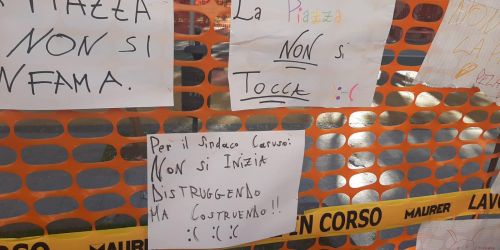 PIAZZA
NON SI
INFAMA.
La Piazza
NON si
TOCCA :-(
Per il Sindaco Caruso:
NON SI INIZIA
DISTRUGGENDO
MA COSTRUENDO!!
:( :( :(
MAURER
IN CORSO
MAURER
LAVO